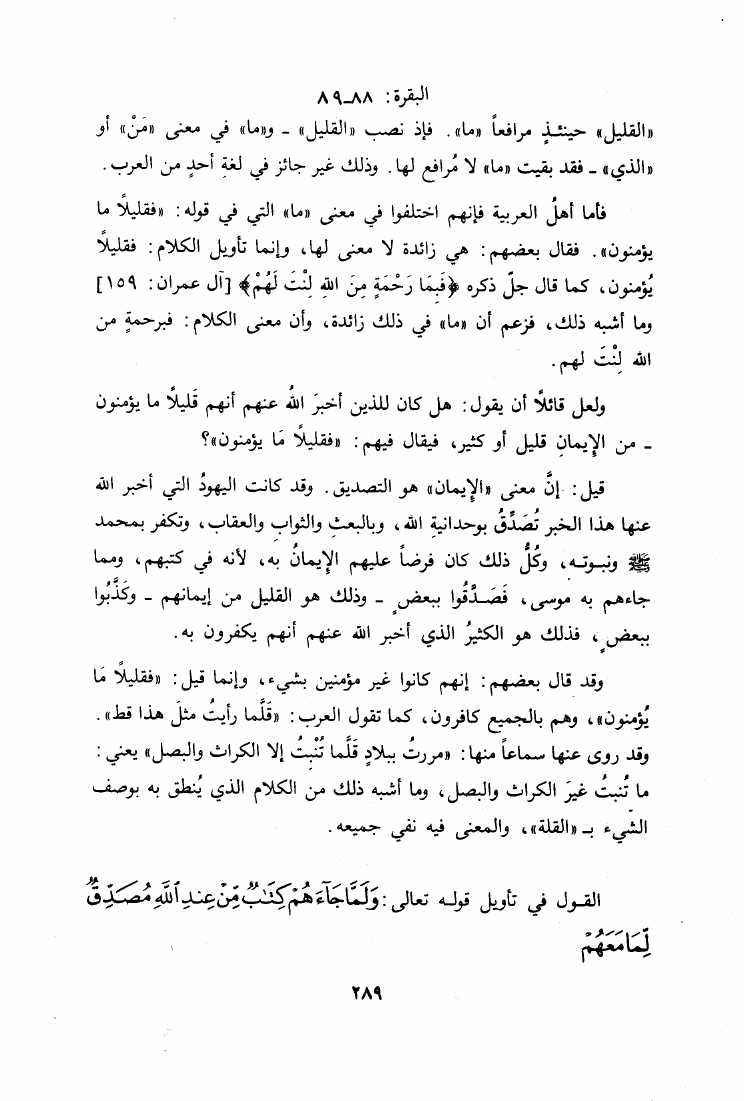 البقرة: ٨٨ـ٨٩
«القليل» حينئـذٍ مرافعاً «ما». فإذ نصب «القليل» ـ و«ما» في معنى «مَنْ» أو
«الذي» ـ فقد بقيت «ما» لا مُرافع لها. وذلك غير جائز في لغةِ أحدٍ من العرب.
فأما أهلُ العربية فإنهم اختلفوا في معنى «ما» التي في قوله: «فقليلًا ما
يؤمنون». فقال بعضهم: هي زائدة لا معنى لها، وإنما تأويل الكلام: فقليلًا
يُؤمنون، كما قال جلّ ذكره ﴿فَبِمَا رَحْمَةٍ مِنَ اللهِ لِنْتَ لَهُمْ﴾ [آل عمران: ١٥٩]
وما أشبه ذلك، فزعم أن «ما» في ذلك زائدة، وأن معنى الكلام: فبرحمةٍ من
الله لِنْتَ لهم.
ولعل قائلًا أن يقول: هل كان للذين أخبرَ اللهُ عنهم أنهم قَليلًا ما يؤمنون
ـ من الإِيمانِ قليل أو كثير، فيقال فيهم: «فقليلًا مَا يؤمنون»؟
قيل: إنَّ معنى «الإِيمان» هو التصديق. وقد كانت اليهودُ التي أخبر الله
عنها هذا الخبر تُصَدِّقُ بوحدانية الله، وبالبعثِ والثواب والعقاب، وتكفر بمحمد
ﷺ ونبـوتـه، وكُلُّ ذلك كان فرضاً عليهم الإِيمانُ به، لأنه في كتبهم، ومما
جاءهم به موسى، فَصَـدَّقُوا ببعضٍ ـ وذلك هو القليل من إيمانهم ـ وكَذَّبُوا
ببعضٍ، فذلك هو الكثيرُ الذي أخبر الله عنهم أنهم يكفرون به.
وقد قال بعضهم: إنهم كانوا غير مؤمنين بشيء، وإنما قيل: «فقليلًا مَا
يُؤمنون»، وهم بالجميع كافرون، كما تقول العرب: «قَلَّما رأيتُ مثلَ هذا قط».
وقد روى عنها سماعاً منها: «مررتُ ببلادٍ قَلَّما تُنْبِتُ إلا الكراث والبصل» يعني:
ما تُنبتُ غيرَ الكراث والبصل، وما أشبه ذلك من الكلام الذي يُنطق به بوصف
الشيء بـ «القلة»، والمعنى فيه نفي جميعه.
القـول في تأويل قولـه تعالى: وَلَمَّا جَآءَهُمْ كِتَٰبٌ مِّنْ عِندِ ٱللَّهِ مُصَدِّقٌ
لِّمَا مَعَهُمْ
٢٨٩